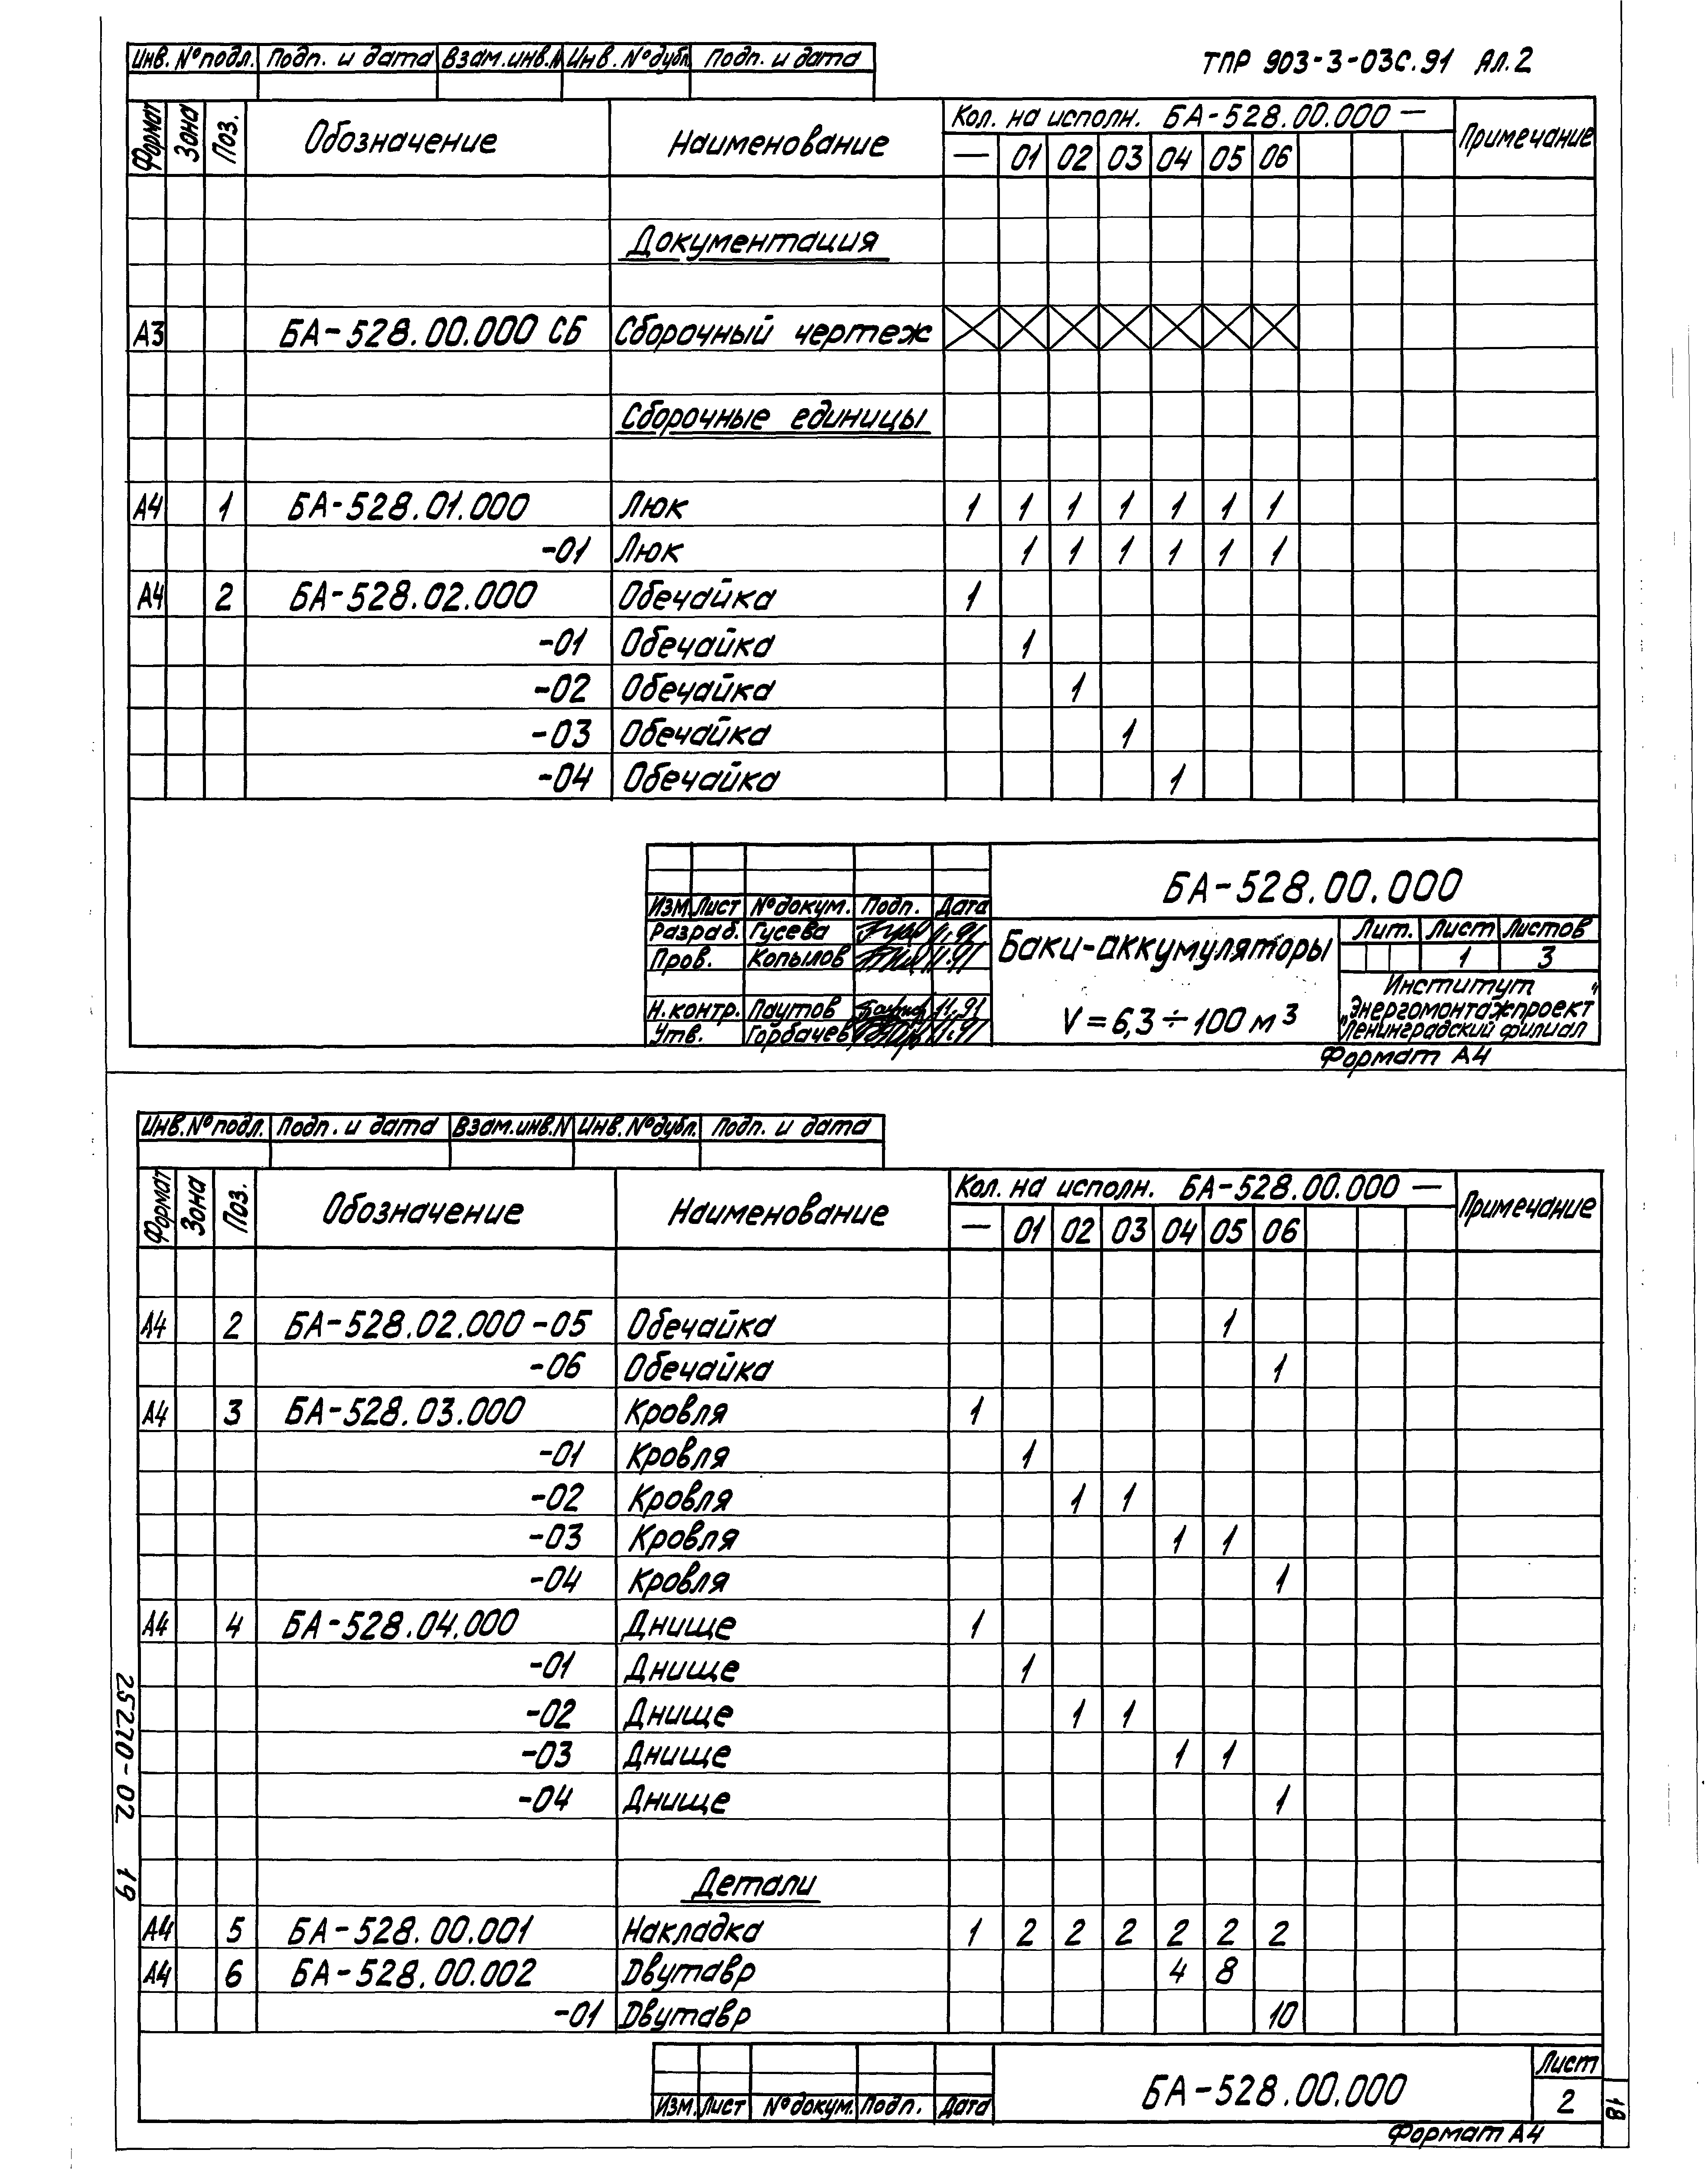 ТПР 903-3-03С.91 Ал.2
Инв. №подл. Подп. и дата Взам.инв.№ Инв. №дубл. Подп. и дата
Формат Зона Поз. Обозначение Наименование Кол. на исполн. БА-528.00.000 — Примечание
— 01 02 03 04 05 06
Документация
А3 БА-528.00.000 СБ Сборочный чертеж
Сборочные единицы
А4 1 БА-528.01.000 Люк 1 1 1 1 1 1 1
-01 Люк 1 1 1 1 1 1
А4 2 БА-528.02.000 Обечайка 1
-01 Обечайка 1
-02 Обечайка 1
-03 Обечайка 1
-04 Обечайка 1
БА-528.00.000
Изм. Лист №докум. Подп. Дата
Разраб. Гусева 11.91
Пров. Копылов 11.91
Н.контр. Паутов 11.91
Утв. Горбачев 11.91
Баки-аккумуляторы
V = 6,3 ÷ 100 м³
Лит. Лист Листов
1 3
Институт
"Энергомонтажпроект"
Ленинградский филиал
Формат А4
Инв.№подл. Подп. и дата Взам.инв.№ Инв. №дубл. Подп. и дата
Формат Зона Поз. Обозначение Наименование Кол. на исполн. БА-528.00.000 — Примечание
— 01 02 03 04 05 06
А4 2 БА-528.02.000 -05 Обечайка 1
-06 Обечайка 1
А4 3 БА-528.03.000 Кровля 1
-01 Кровля 1
-02 Кровля 1 1
-03 Кровля 1 1
-04 Кровля 1
А4 4 БА-528.04.000 Днище 1
-01 Днище 1
-02 Днище 1 1
-03 Днище 1 1
-04 Днище 1
Детали
А4 5 БА-528.00.001 Накладка 1 2 2 2 2 2 2
А4 6 БА-528.00.002 Двутавр 4 8
-01 Двутавр 10
Изм. Лист №докум. Подп. Дата
БА-528.00.000
Лист
2
Формат А4
25270-02 19
18